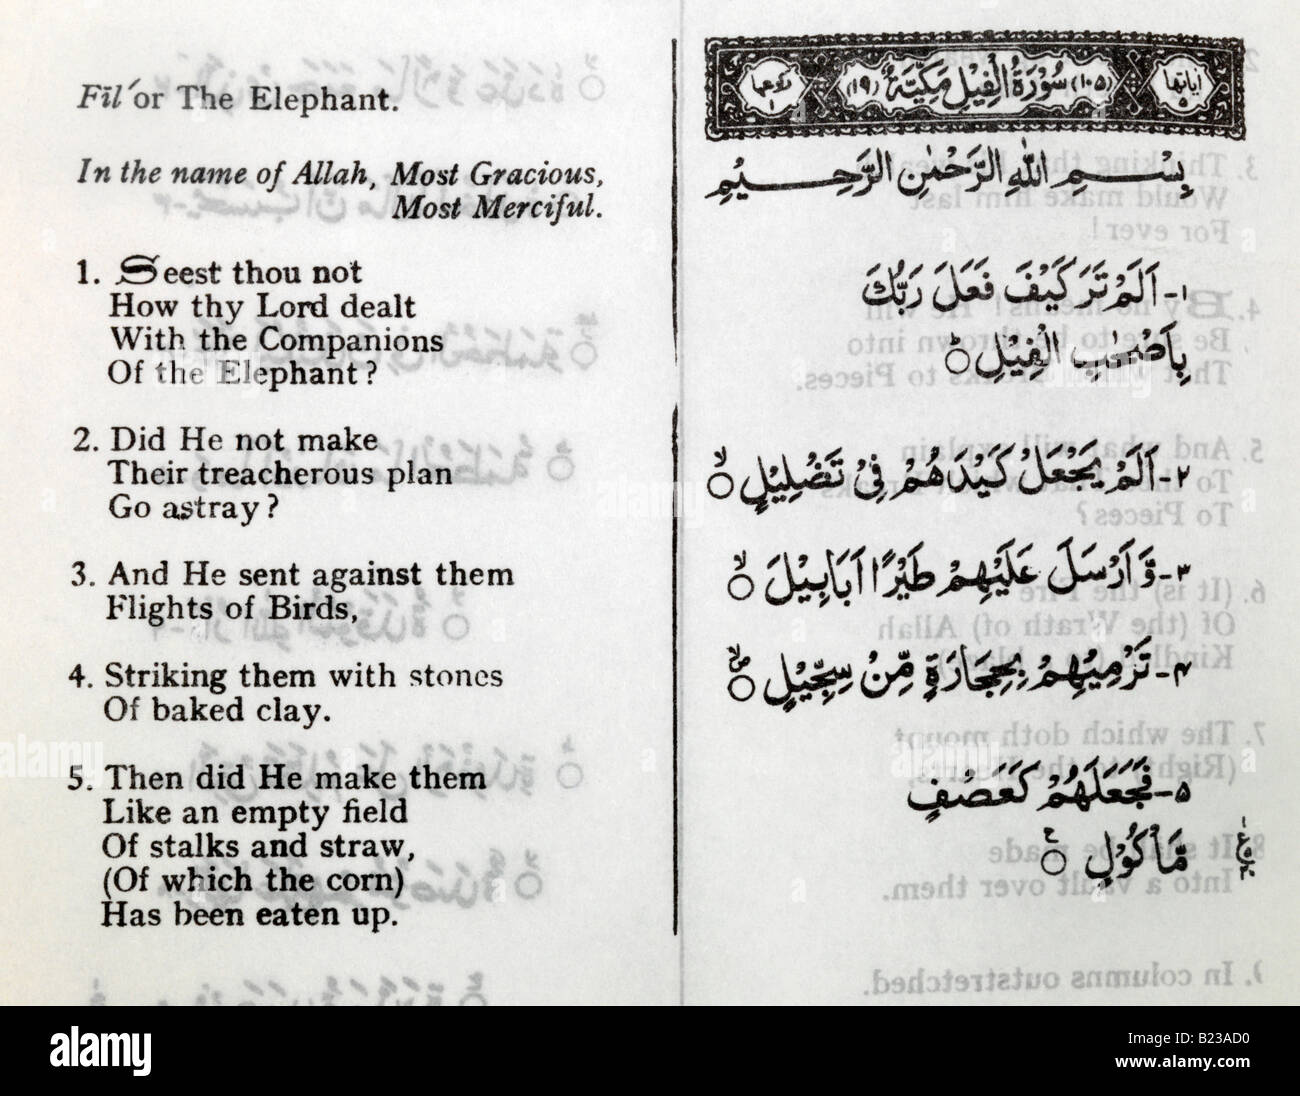 Fīl or The Elephant.
In the name of Allah, Most Gracious,
Most Merciful.
1. Seest thou not
How thy Lord dealt
With the Companions
Of the Elephant?
2. Did He not make
Their treacherous plan
Go astray?
3. And He sent against them
Flights of Birds,
4. Striking them with stones
Of baked clay.
5. Then did He make them
Like an empty field
Of stalks and straw,
(Of which the corn)
Has been eaten up.
اٰیاتها ۵ (۱۰۵) سُوْرَةُ الْفِيْلِ مَكِّيَّةٌ (۱۹) ركوعها ۱
بِسْمِ اللهِ الرَّحْمٰنِ الرَّحِيْمِ
۱- اَلَمْ تَرَ كَيْفَ فَعَلَ رَبُّكَ
بِاَصْحٰبِ الْفِيْلِ ○ؕ
۲- اَلَمْ يَجْعَلْ كَيْدَهُمْ فِيْ تَضْلِيْلٍ ○ۙ
۳- وَّ اَرْسَلَ عَلَيْهِمْ طَيْرًا اَبَابِيْلَ ○ۙ
۴- تَرْمِيْهِمْ بِحِجَارَةٍ مِّنْ سِجِّيْلٍ ○
۵- فَجَعَلَهُمْ كَعَصْفٍ
مَّاْكُوْلٍ ○
alamy
Image ID: B23AD0
www.alamy.com